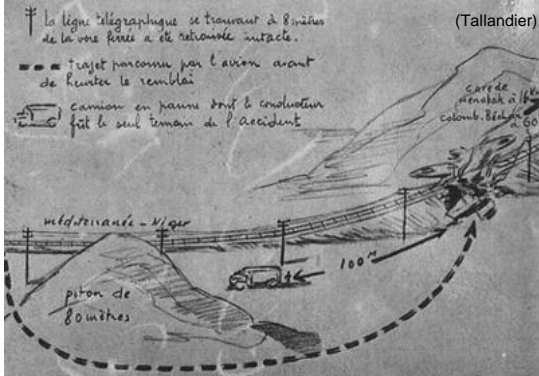 la ligne télégraphique se trouvant à 8 mètres
de la voie ferrée a été retrouvée intacte.
(Tallandier)
trajet parcouru par l'avion avant
de heurter le remblai
camion en panne dont le conducteur
fût le seul temoin de l'accident
gare de
menabah à 16 Km
colomb. Béchar
à 60
méditerranée - Niger
100M
piton de
80 mètres